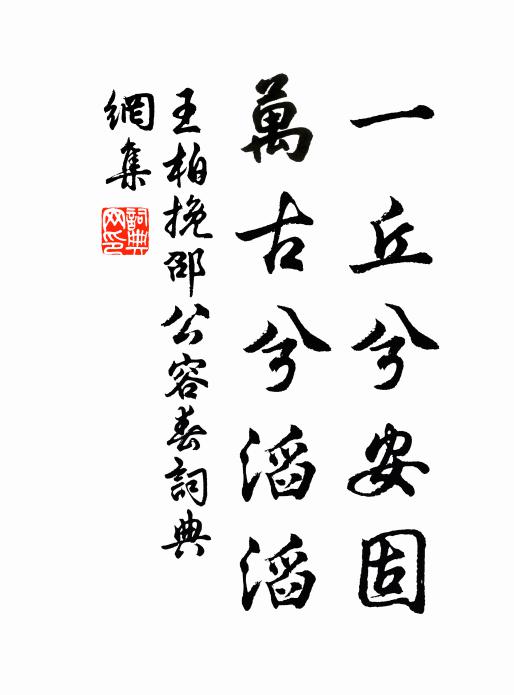 一丘兮安固
萬古兮滔滔
王柏挽邵公容春詞典
網集
詞典網印